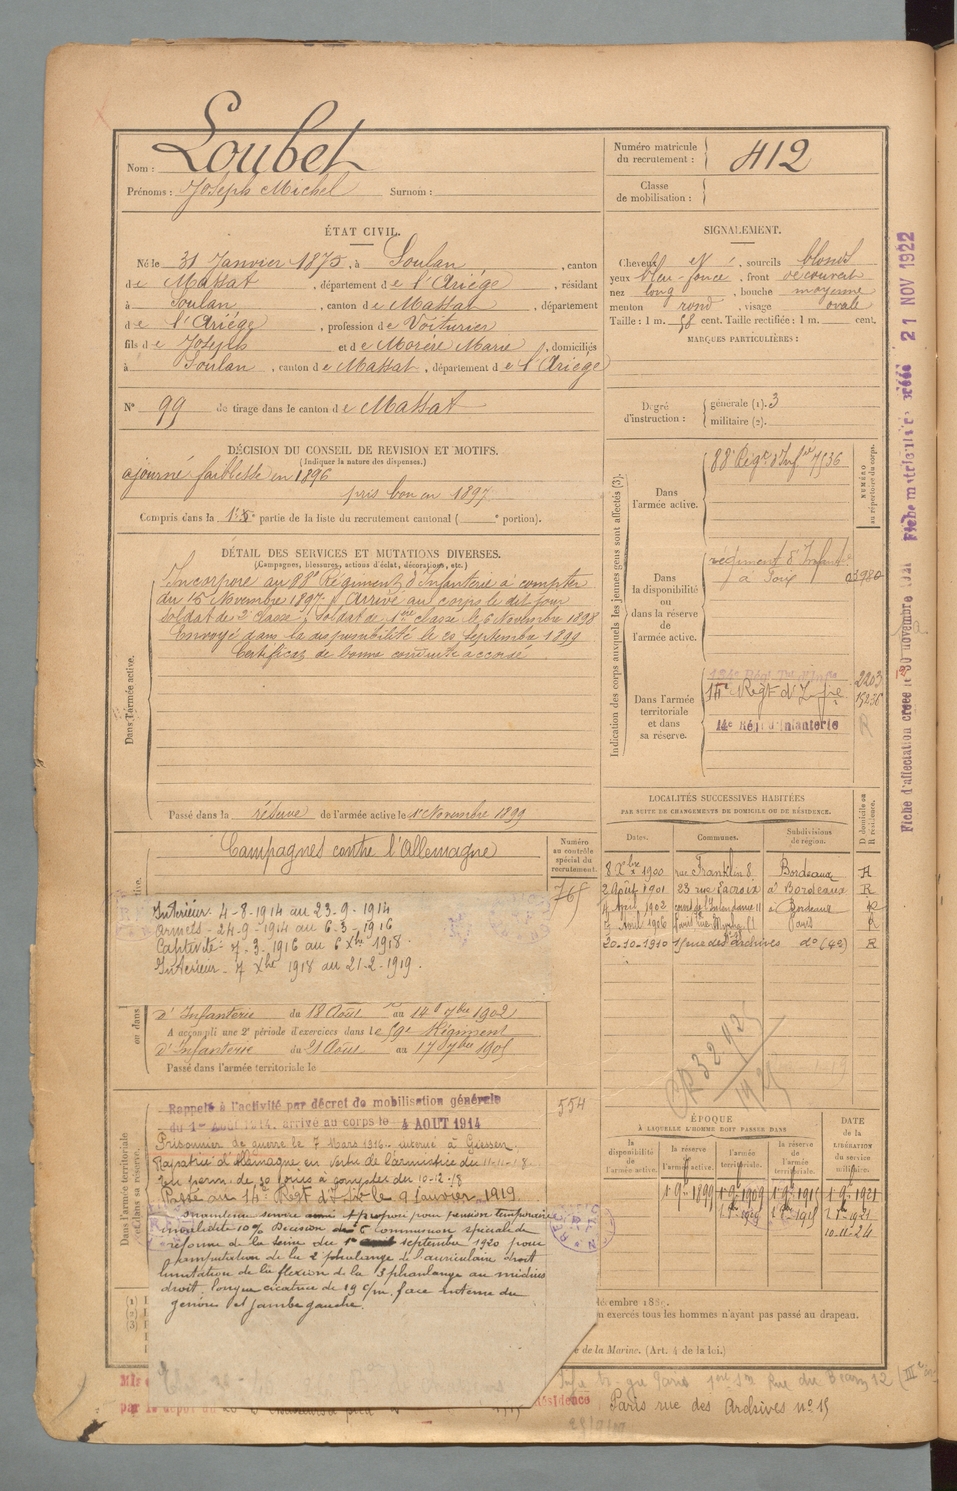 Nom : Loubet
Prénoms : Joseph Michel Surnom :
Numéro matricule
du recrutement : 412
Classe
de mobilisation :
ÉTAT CIVIL.
Né le 31 Janvier 1875, à Soulan, canton
de Massat, département de l'Ariége, résidant
à Soulan, canton de Massat, département
de l'Ariége, profession de Voiturier
fils de Joseph et de Morère Marie, domiciliés
à Soulan, canton de Massat, département de l'Ariége
N° 99 de tirage dans le canton de Massat
SIGNALEMENT.
Cheveux N, sourcils blonds
yeux bleu-foncé, front découvert
nez long, bouche moyenne
menton rond, visage ovale
Taille : 1 m. 58 cent. Taille rectifiée : 1 m. cent.
MARQUES PARTICULIÈRES :
Degré
d'instruction :
générale (1). 3
militaire (2).
DÉCISION DU CONSEIL DE REVISION ET MOTIFS.
(Indiquer la nature des dispenses.)
ajourné faiblesse en 1896
pris bon en 1897
Compris dans la 1re partie de la liste du recrutement cantonal ( e portion).
DÉTAIL DES SERVICES ET MUTATIONS DIVERSES.
(Campagnes, blessures, actions d'éclat, décorations, etc.)
Dans l'armée active.
Incorporé au 88e Régiment d'Infanterie à compter
du 15 Novembre 1897. Arrivé au corps le dit jour
soldat de 2e classe. Soldat de 1re classe le 6 Novembre 1898
Envoyé dans la disponibilité le 20 Septembre 1899
Certificat de bonne conduite accordé
Passé dans la réserve de l'armée active le 1er Novembre 1899
Indication des corps auxquels les jeunes gens sont affectés (3).
NUMÉRO
au répertoire du corps.
Dans
l'armée active.
88e Régt d'Infie 7536
Dans
la disponibilité
ou
dans la réserve
de
l'armée active.
régiment d'Infant
à Foix
03980
Dans l'armée
territoriale
et dans
sa réserve.
134e Régt Ter d'Infie
Régt d'Infie
14e Rég d'Infanterie
2203
R
LOCALITÉS SUCCESSIVES HABITÉES
PAR SUITE DE CHANGEMENTS DE DOMICILE OU DE RÉSIDENCE.
Dates. Communes. Subdivisions de région. D domicile ou R résidence.
8 Xbre 1900 rue Franklin 8 Bordeaux
2 Août 1901 23 rue Lacroix à Bordeaux R
1902 Bordeaux R
Avril 1906 Paris rue Paris R
30-10-1910 15 rue des Archives do R
Campagnes contre l'Allemagne
Numéro
au contrôle
spécial du
recrutement.
765
Intérieur 4-8-1914 au 23-9-1914
armées - 24-9-1914 au 6-3-1916
Captivité 7-3-1916 au 6 Xbre 1918.
Intérieur - 7 Xbre 1918 au 21-2-1919.
d'Infanterie du 18 Août au 14 7bre 1902
A accompli une 2e période d'exercices dans le 59e Régiment
d'Infanterie du 21 Août au 17 7bre 1905
Passé dans l'armée territoriale le
Dans l'armée territoriale
et dans sa réserve.
Rappelé à l'activité par décret de mobilisation générale
du 1er Août 1914, arrivé au corps le 4 AOUT 1914
554
Prisonnier de guerre le 7 Mars 1916 interné à Giessen.
Rapatrié d'Allemagne en vertu de l'armistice du 11-11-18
En perm. de 30 jours à compter du 10-12-18
Passé au 14e Régt d'Infie le 9 Janvier 1919.
maintenu service armé proposé pour pension temporaire
invalidité 10% Décision Commission spéciale de
réforme de la Seine du 1er septembre 1920 pour
amputation de la 2 phalange de l'auriculaire droit
limitation de la flexion de la 3 phalange au médius
droit, longue cicatrice de 19 c/m face interne du
genou et jambe gauche.
ÉPOQUE
À LAQUELLE L'HOMME DOIT PASSER DANS
la disponibilité de l'armée active. la réserve de l'armée active. l'armée territoriale. la réserve de l'armée territoriale. DATE de la LIBÉRATION du service militaire.
1 9bre 1899 1 9bre 1909 1 9bre 1915 1 9bre 1921
10-11-24
(1)
(2)
(3)
n exercés tous les hommes n'ayant pas passé au drapeau.
de la Marine. (Art. 4 de la loi.)
Résidence
Paris rue des Archives no 15
Fiche matriculaire créée 21 NOV 1922
Fiche d'affectation créée le 30 novembre